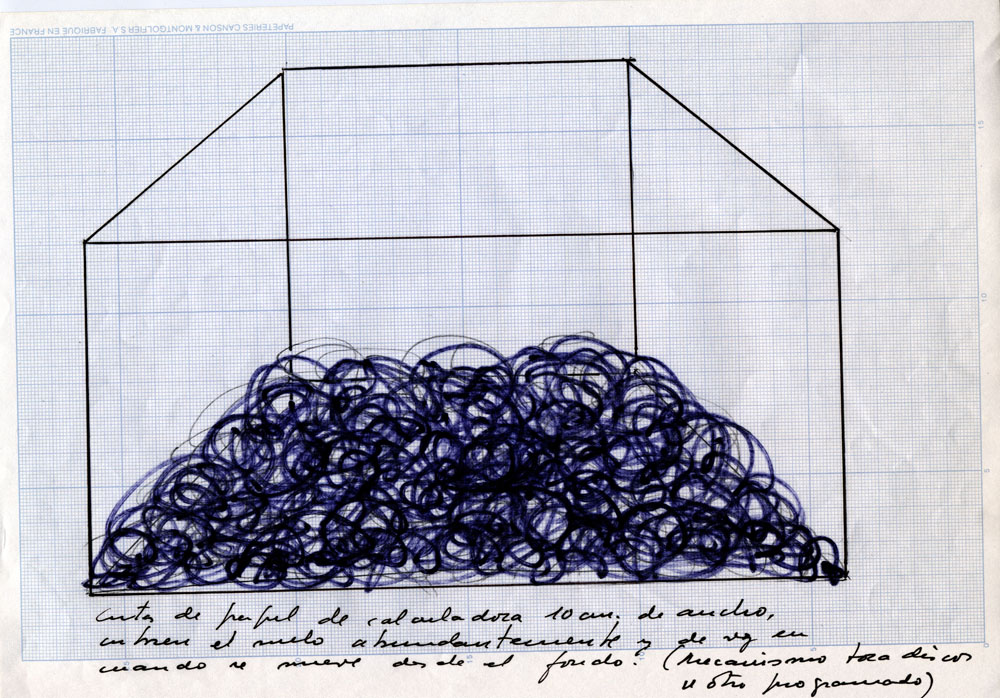 PAPETERIES CANSON & MONTGOLFIER S.A. FABRIQUE EN FRANCE
15
10
5
Cinta de papel de calculadora 10 cm. de ancho,
cubren el suelo abundantemente y de vez en
cuando se mueve desde el fondo. (Mecanismo tocadiscos
u otro programado)